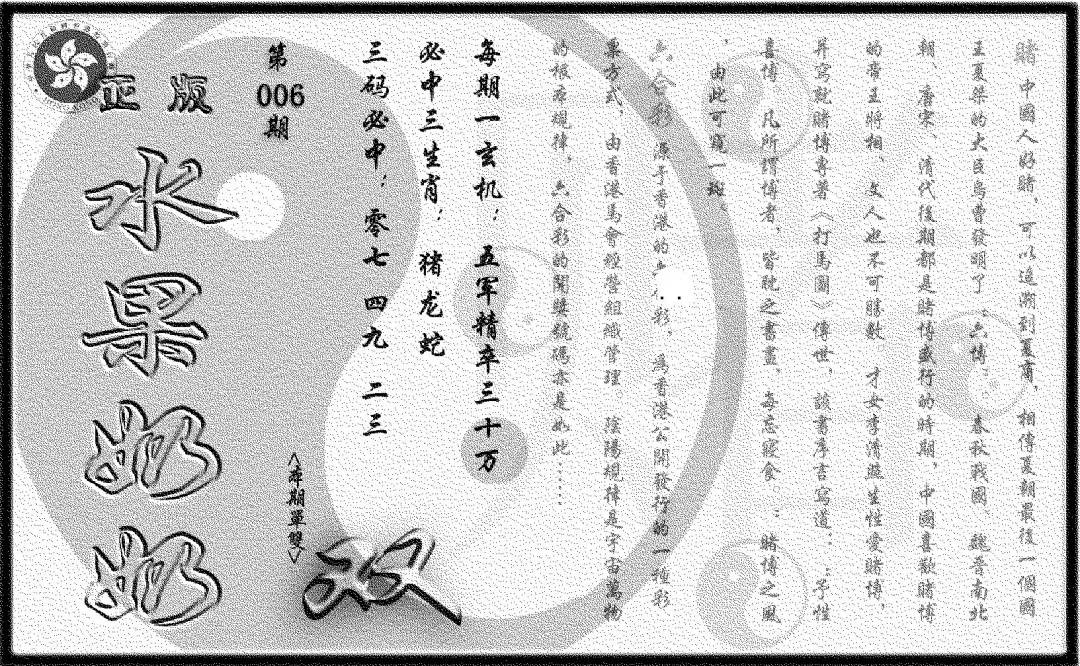 賭 中國人好賭，可以追溯到夏商，相傳夏朝最後一個國
王夏桀的大臣烏曹發明了：六博：。春秋戰國、魏晉南北
朝、唐宋、清代後期都是賭博盛行的時期，中國喜歡賭博
的帝王將相 文人也不可勝數 才女李清照生性愛賭博，
并寫就賭博專著《打馬圖》傳世，該書序言寫道：：予性
喜博，凡所謂博者，皆耽之書晝，每忘寢食。：賭博之風
，由此可窺一斑。
六合彩 源于香港的六 彩，爲香港公開發行的一種彩
票方式，由香港馬會經營組織管理。陰陽規律是宇宙萬物
的根本規律，六合彩的開獎號碼亦是如此……
每期一玄机：五军精卒三十万
必中三生肖：猪龙蛇
三码必中：零七 四九 二三
第
006
期
<本期單雙>
双
正版
水果奶奶